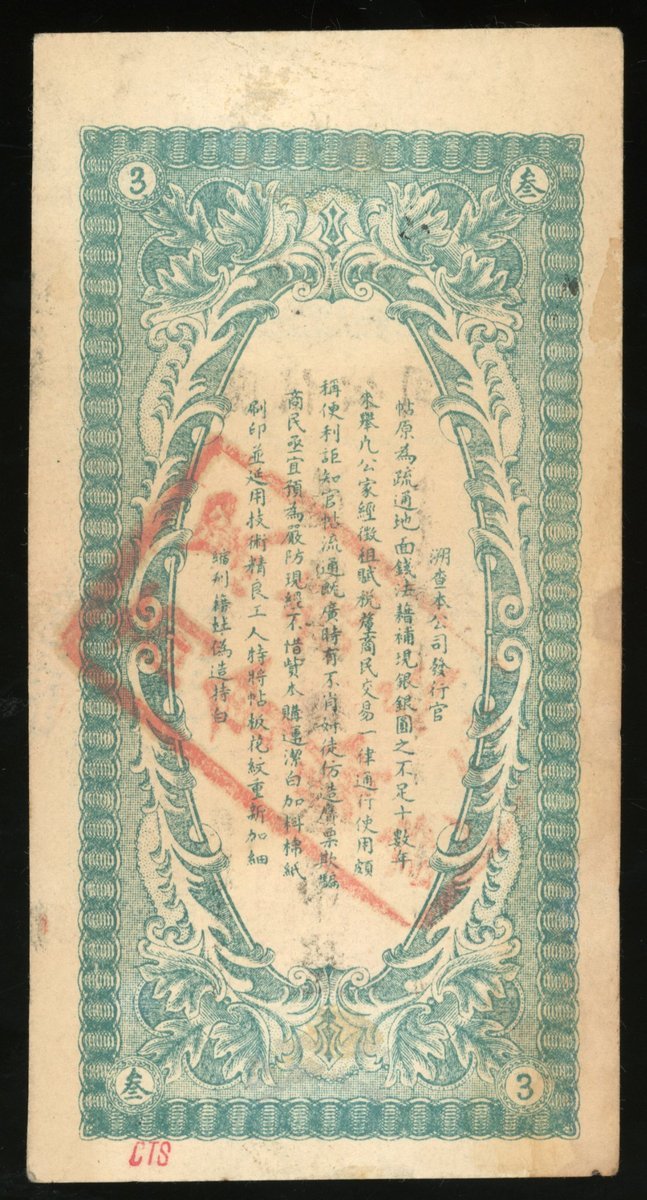 3
叁
溯查本公司發行官
帖原為疏通地面錢法藉補現銀銀圓之不足十數年
來舉凡公家經徵租賦稅釐商民交易一律通行使用頗
稱便利詎知官帖流通既廣時有不肖奸徒仿造贋票欺騙
商民亟宜預為嚴防現經不惜貲本購運潔白加料棉紙
刷印並延用技術精良工人特將帖板花紋重新加細
縮刊藉杜偽造特白
叁
3
CTS